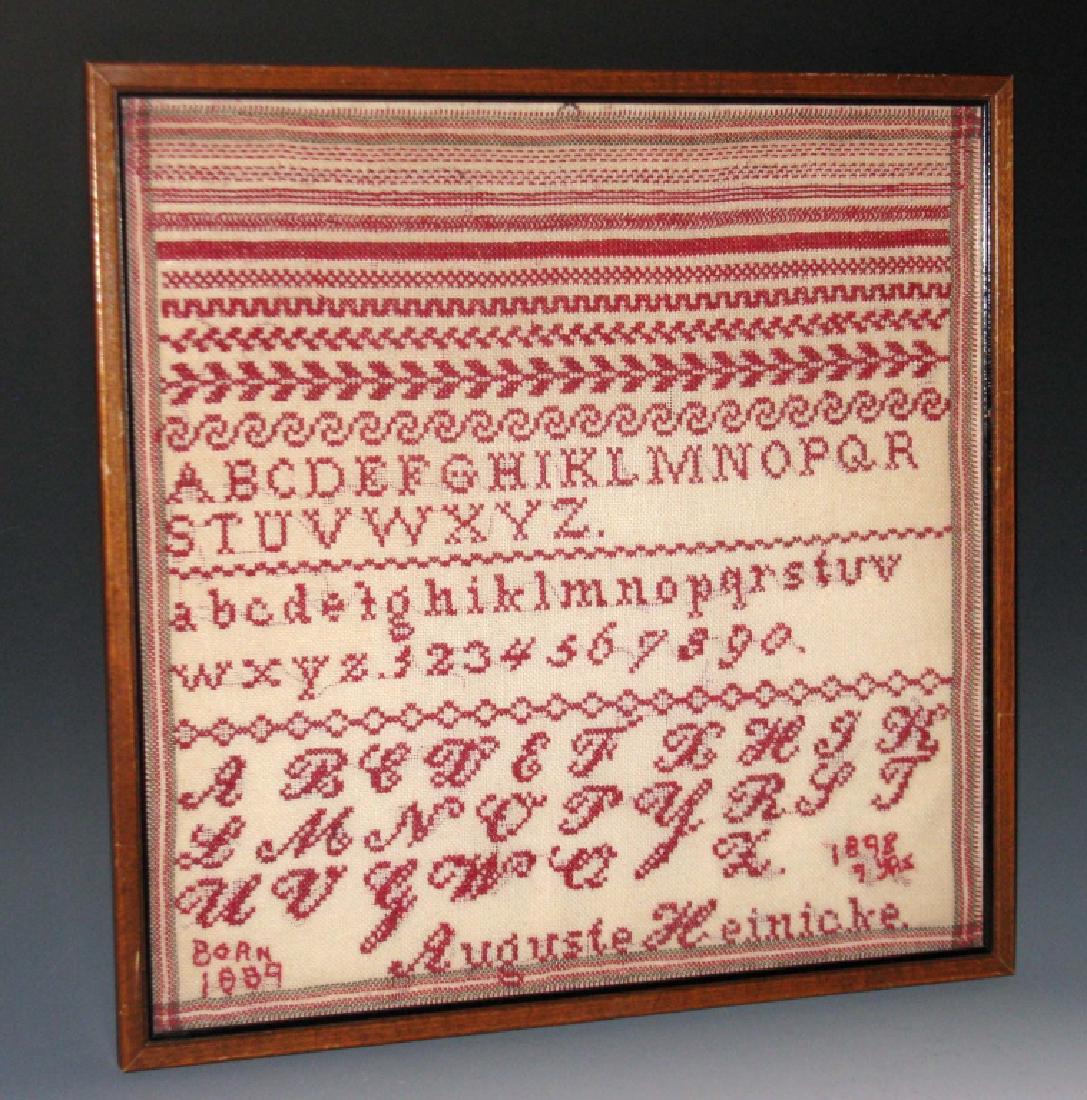 ABCDEFGHIKLMNOPQR
STUVWXYZ.
abcdefghiklmnopqrstuv
wxyz.1234567890.
A B C D E F X H I K
L M N O P Y R S T
U V G W Q Z 1898
9 yrs
BORN
1889
Auguste Heinicke.